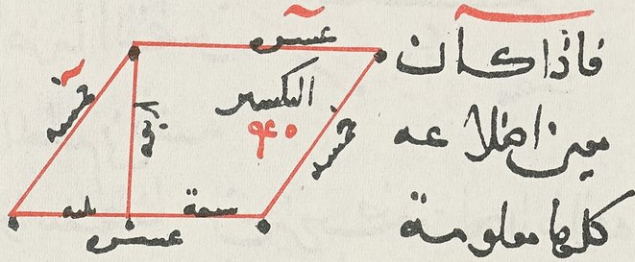 فاذا كان
معين اضلاعه
كلها معلومة
عشره
خمسه
التكسير
۴۰
خمسه
ثلثه
سبعة
عشره